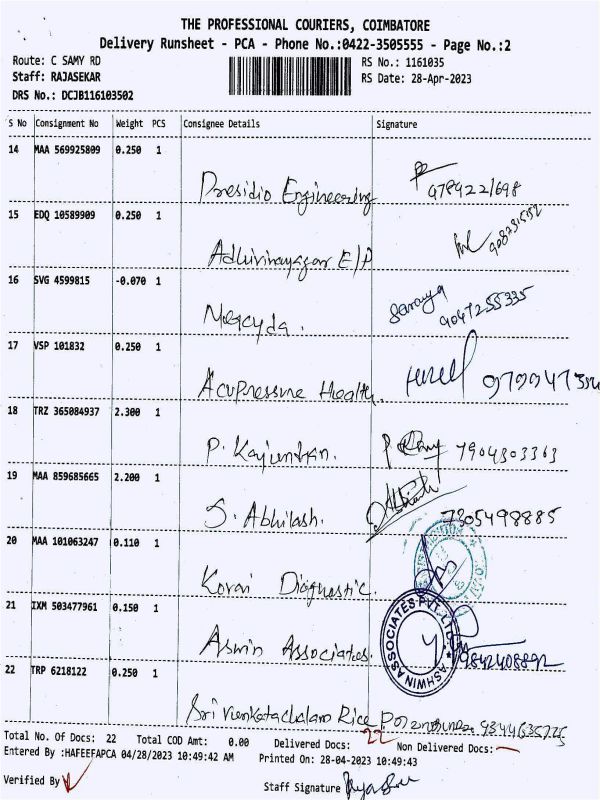 THE PROFESSIONAL COURIERS, COIMBATORE
Delivery Runsheet - PCA - Phone No.:0422-3505555 - Page No.:2
Route: C SAMY RD
RS No.: 1161035
Staff: RAJASEKAR
RS Date: 28-Apr-2023
DRS No.: DCJB116103502
S No Consignment No Weight PCS Consignee Details Signature
14 MAA 569925809 0.250 1
Presidio Engineering
15 EDQ 10589909 0.250 1
E/P
16 SVG 4599815 -0.070 1
Saranya
9047255335
17 VSP 101832 0.250 1
Acupressure Health.
18 TRZ 365084937 2.300 1
P.
7904303363
19 MAA 859685665 2.200 1
S. Abhilash.
7305498885
20 MAA 101063247 0.110 1
Kovai Diagnostic.
21 IXM 503477961 0.150 1
Aswin Associates.
ASHWIN ASSOCIATES PVT. LTD.
9842408892
22 TRP 6218122 0.250 1
Sri Venkatachalam Rice
Total No. Of Docs: 22 Total COD Amt: 0.00 Delivered Docs: 22 Non Delivered Docs:
Entered By :HAFEEFAPCA 04/28/2023 10:49:42 AM Printed On: 28-04-2023 10:49:43
Verified By
Staff Signature